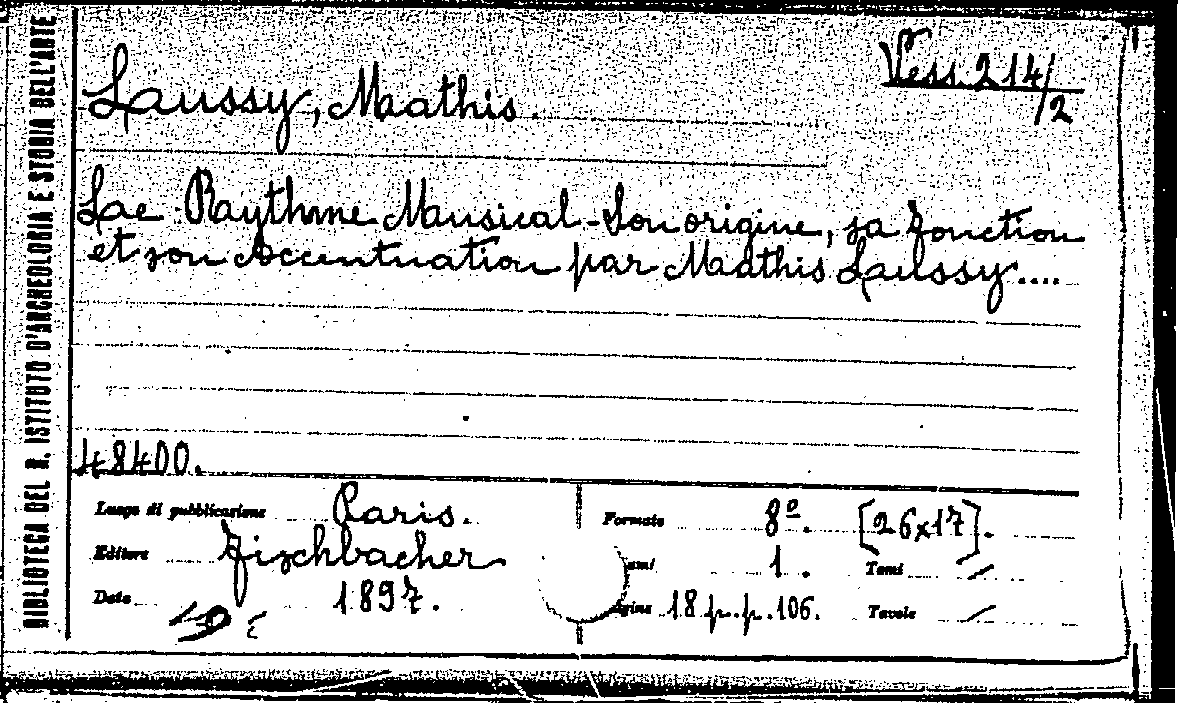 BIBLIOTECA DEL R. ISTITUTO D'ARCHEOLOGIA E STORIA DELL'ARTE
Vess. 214/2
Lussy, Mathis.
Le Rythme Musical - Son origine, sa fonction
et son Accentuation par Mathis Lussy....
48400.
Luogo di pubblicazione Paris.
Editore Fischbacher
Data 1897.
Formato 8º. [26x17].
umi 1. Tomi /
agine 18 p.p. 106. Tavole /